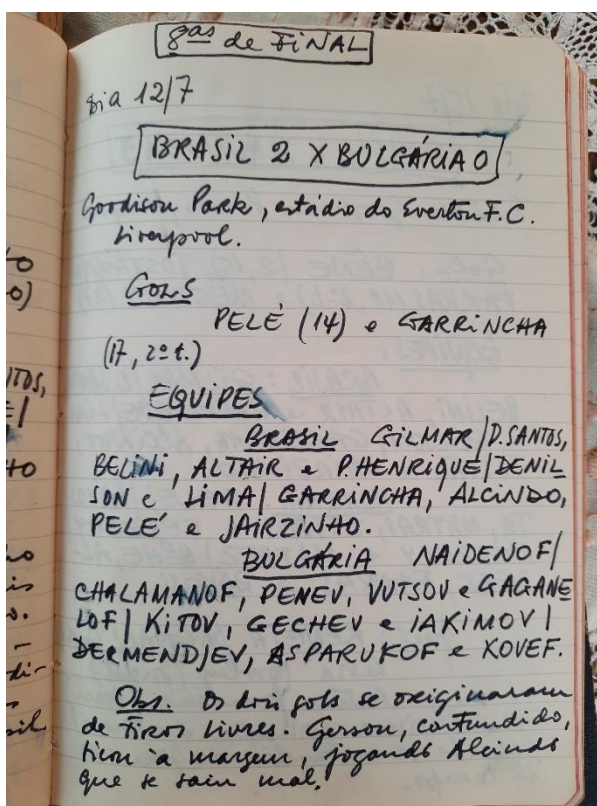 8ªs de FiNAL
Dia 12/7
BRASIL 2 X BULGÁRIA 0
Goodison Park, estádio do Everton F.C.
Liverpool.
GOLS
PELÉ (14) e GARRiNCHA
(17, 2º t.)
EQUiPES
BRASIL GiLMAR/D.SANTOS,
BELiNi, ALTAiR e P.HENRiQUE/DENiL
SON e LiMA/ GARRiNCHA, ALCiNDO,
PELÉ e JAiRZiNHO.
BULGÁRIA NAiDENOF/
CHALAMANOF, PENEV, VUTSOV e GAGANE
LOF/ KiTOV, GECHEV e iAKiMOV/
DERMENDJEV, ASPARUKOF e KOVEF.
Obs. Os dois gols se originaram
de tiros livres. Gerson, contundido,
ficou à margem, jogando Alcindo
que se saiu mal.